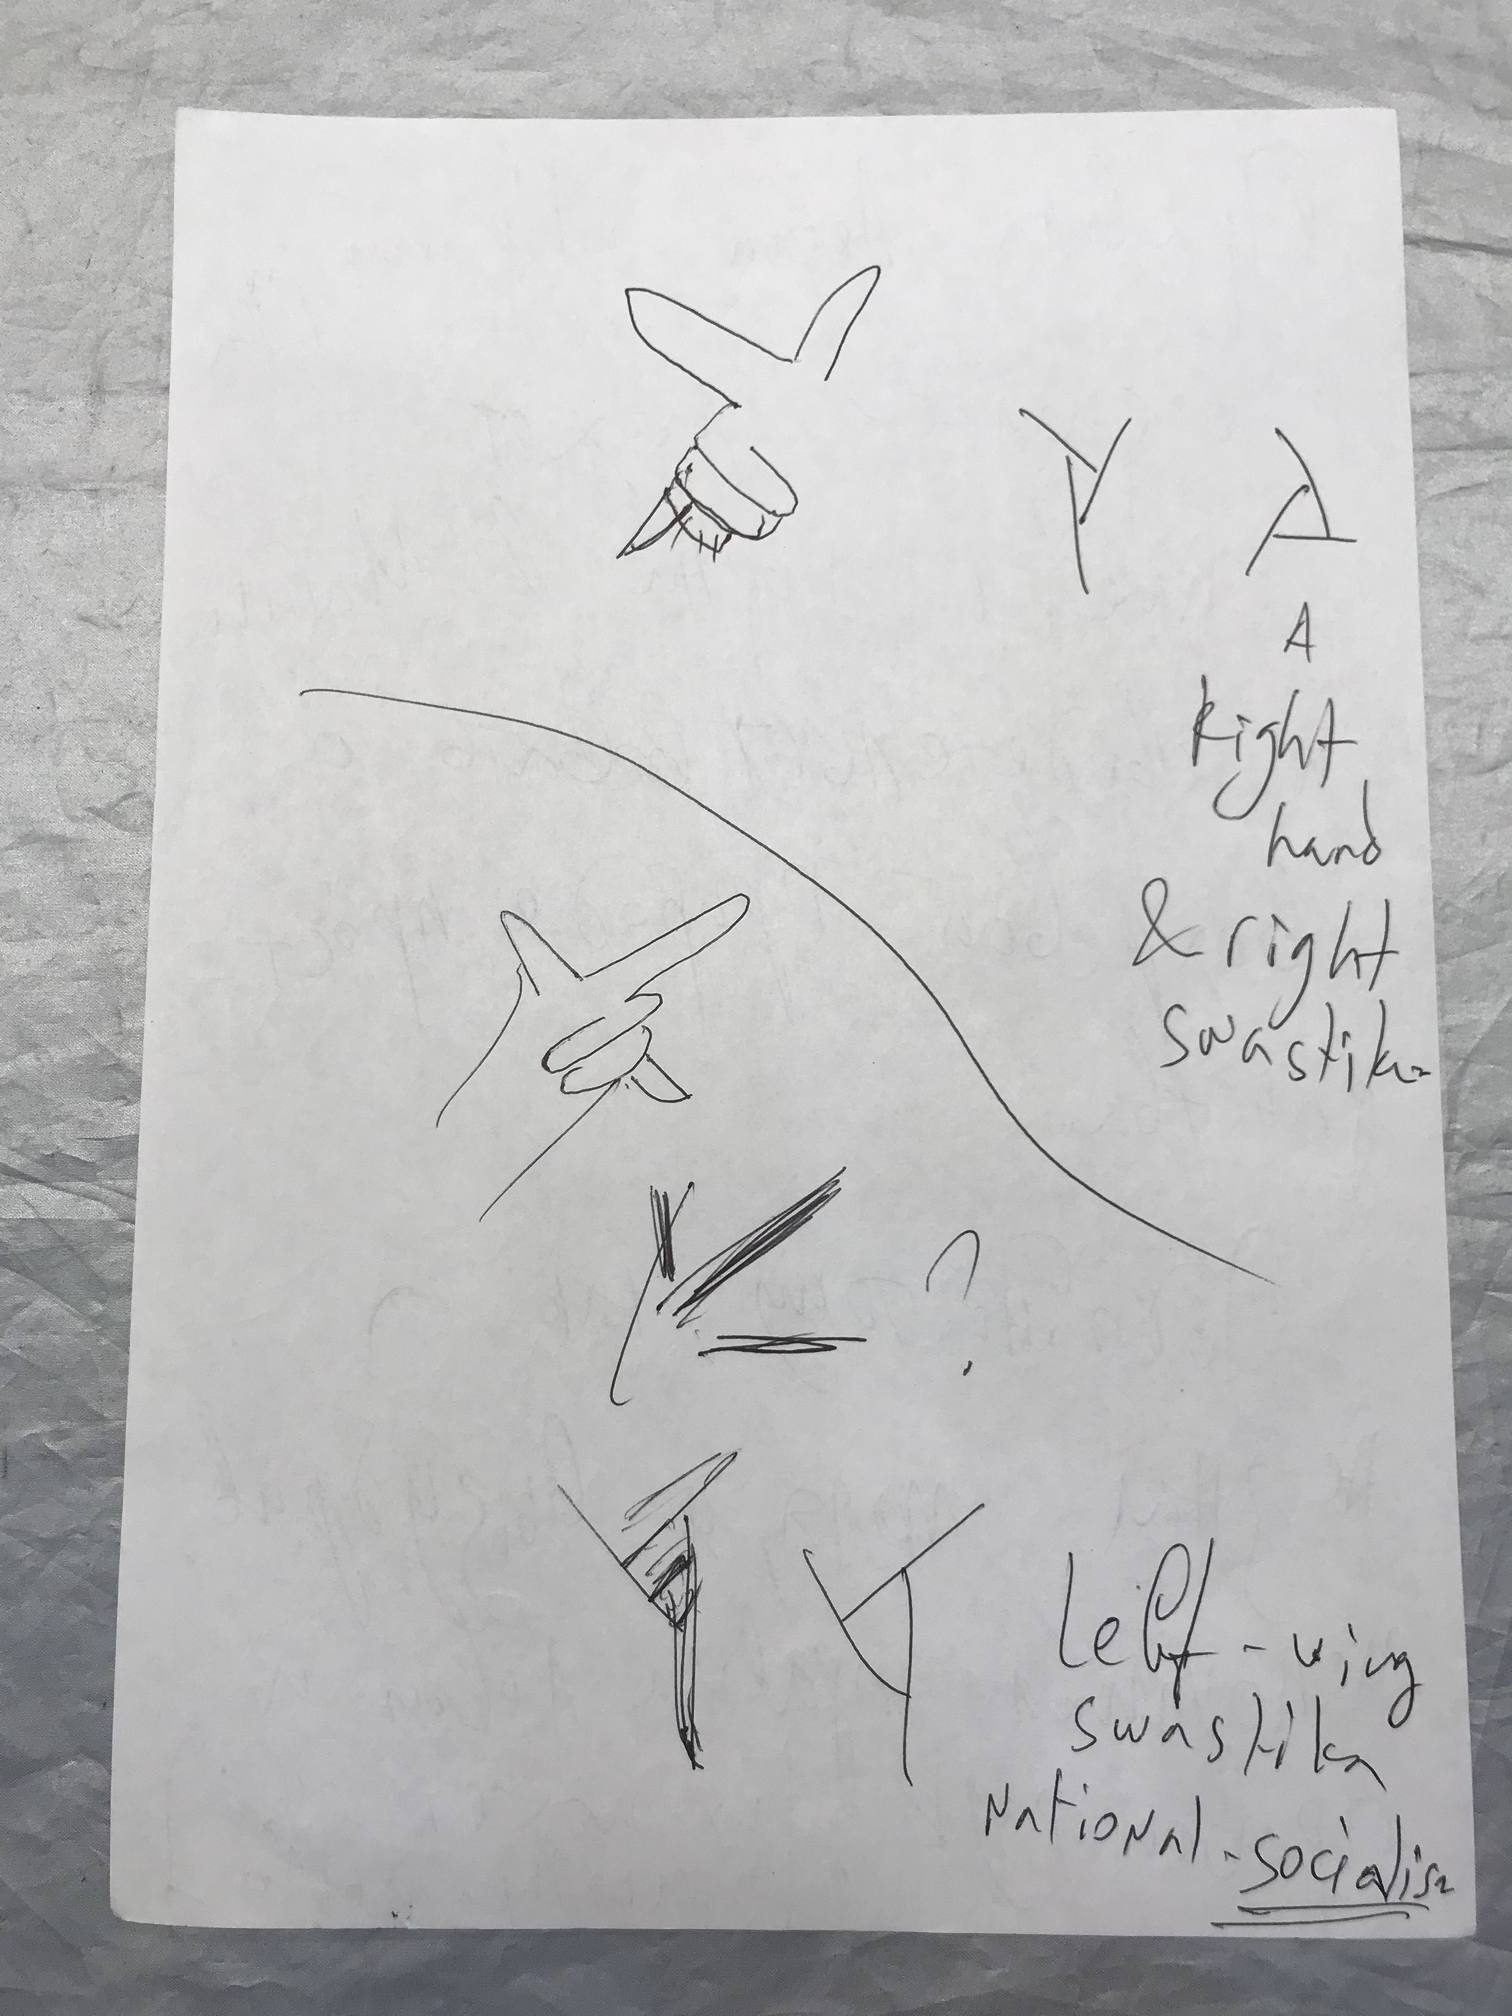 A
Right
hand
& right
swastika
?
Left-wing
swastika
National-socialis